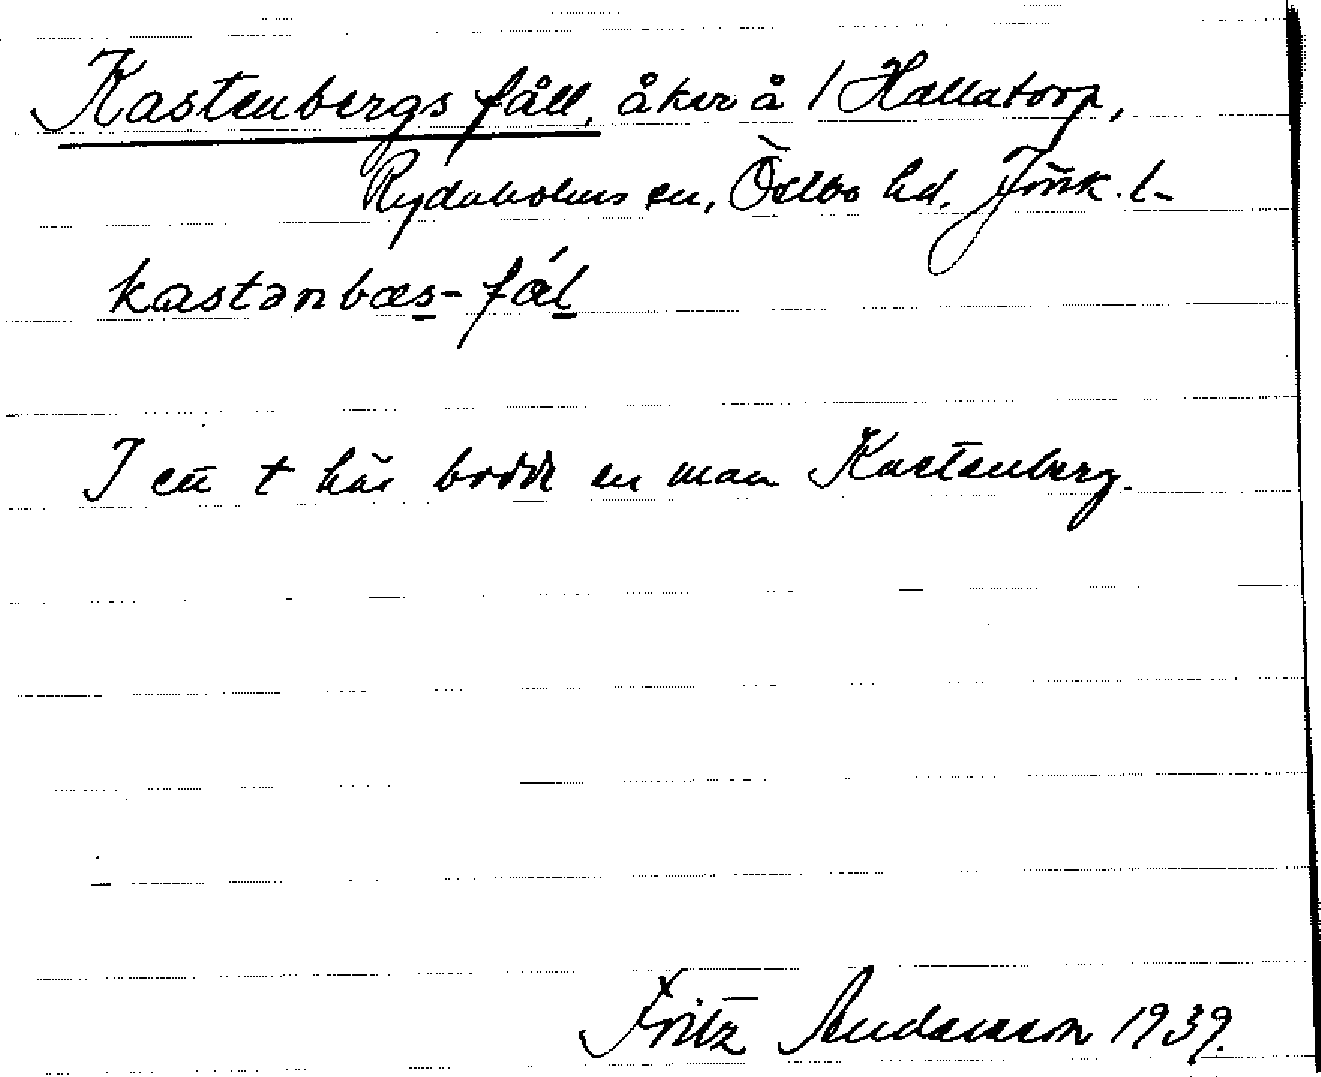 Kastenbergs fåll, åker å / Hallatorp,
Rydaholms sn, Östbo hd. Jönk. l.
kastənbæs-fál
I ett t här bodde en man Kastenberg.
Fritz Andersson 1939.